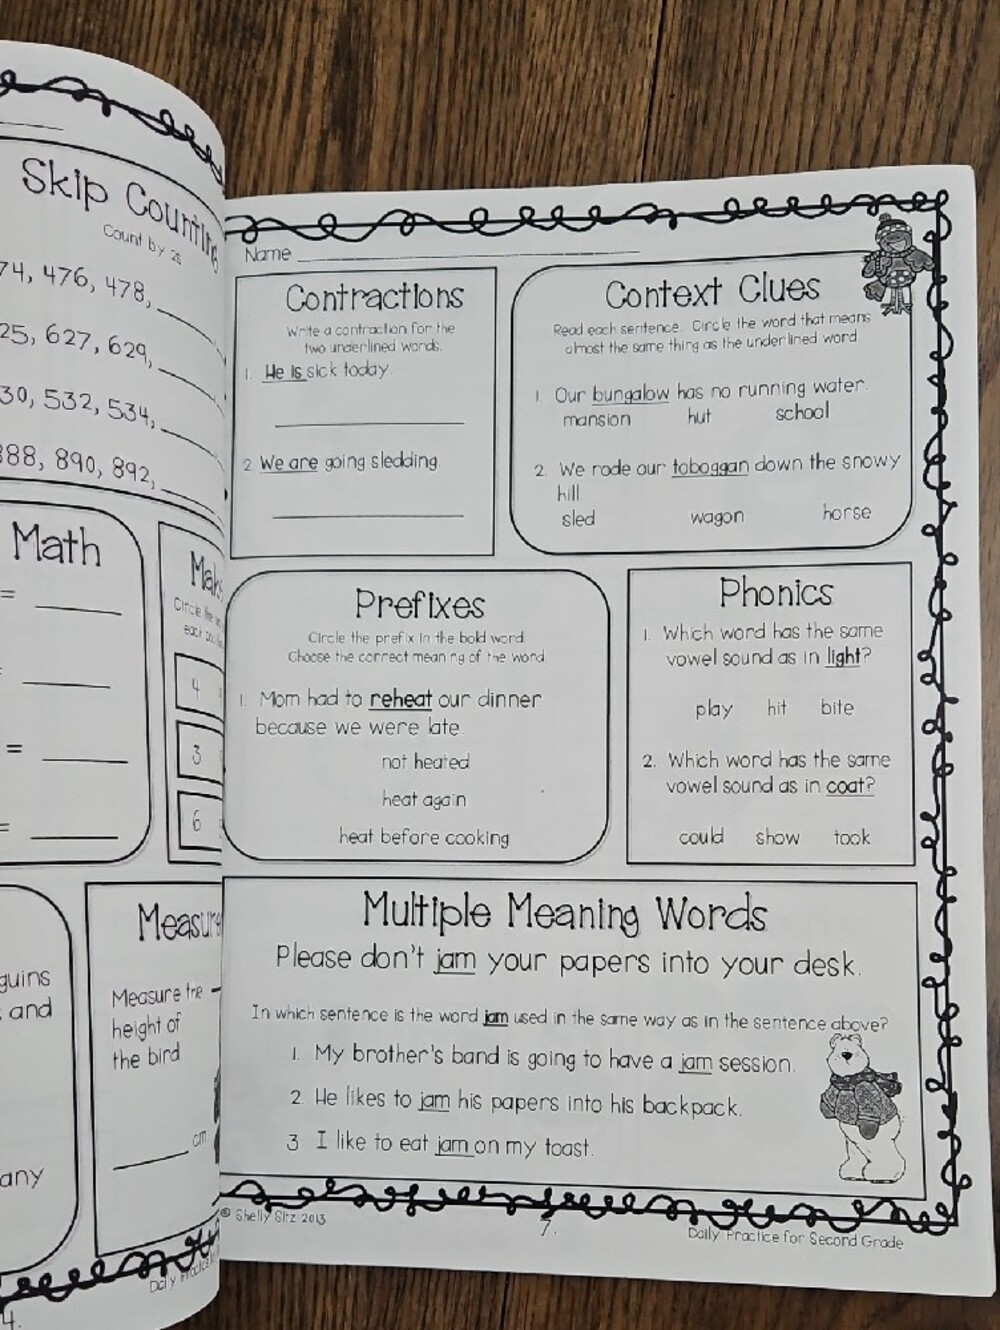 Skip Counting
Count by 2s
74, 476, 478,
25, 627, 629,
30, 532, 534,
888, 890, 892,
Math
=
=
=
Circle the
each
4
3
6
Measure the
height of
the bird
cm
guins
and
any
4.
Name
Contractions
Write a contraction for the
two underlined words.
1. He is sick today.
2. We are going sledding.
Context Clues
Read each sentence. Circle the word that means
almost the same thing as the underlined word.
1. Our bungalow has no running water.
mansion hut school
2. We rode our toboggan down the snowy
hill.
sled wagon horse
Prefixes
Circle the prefix in the bold word.
Choose the correct meaning of the word.
1. Mom had to reheat our dinner
because we were late.
not heated
heat again
heat before cooking
Phonics
1. Which word has the same
vowel sound as in light?
play hit bite
2. Which word has the same
vowel sound as in coat?
could show took
Multiple Meaning Words
Please don't jam your papers into your desk.
In which sentence is the word jam used in the same way as in the sentence above?
1. My brother's band is going to have a jam session.
2. He likes to jam his papers into his backpack.
3. I like to eat jam on my toast.
© Shelly Sitz 2013
7.
Daily Practice for Second Grade